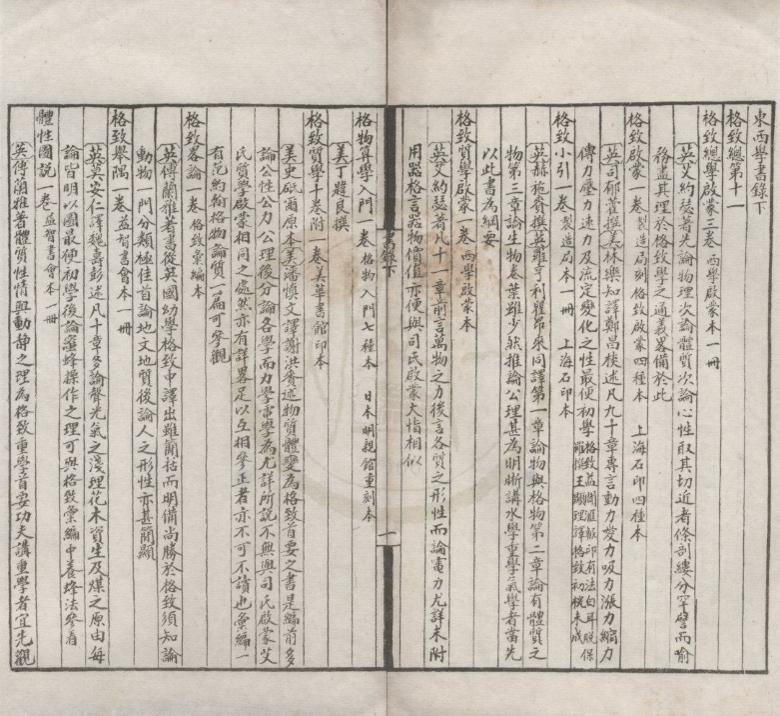 東西學書錄下
格致總第十一
格致總學啟蒙三卷 西學啟蒙本一冊
英艾約瑟著先論物理次論體質次論心性取其切近者條剖縷分罕譬而喻
務盡其理於格致學之通義畧備於此
格致啟蒙一卷 製造局刻格致啟蒙四種本 上海石印四種本
英司郁藿撰美林樂知譯鄭昌棪述凡九十章專言動力愛力吸力漲力縮力
傳力壓力速力及流定變化之性最便初學 格致益聞匯報印有法白耳脫保羅撰王顯理譯格致初桄未成
格致小引一卷 製造局本一冊 上海石印本
英赫施賚撰英羅亨利瞿昂來同譯第一章論物與格物第二章論有體質之
物第三章論生物卷葉雖少然推論公理甚為明晰講水學重學氣學者當先
以此書為綱要
格致質學啟蒙一卷 西學啟蒙本
英艾約瑟著凡十一章前言萬物之力後言各質之形性而論電力尤詳末附
用器格言器物價值亦便與司氏啟蒙大恉相似
書錄下
一
格物算學入門一卷 格物入門七種本 日本明親館重刻本
美丁韙良撰
格致質學十卷附一卷 美華書館印本
美史砥爾原本美潘慎文譯謝洪賚述物質體變為格致首要之書是編前多
論公性公力公理後分論各學而力學電學為尤詳所說不無與司氏啟蒙艾
氏質學啟蒙相同之處然亦有詳畧足以互相參正者亦不可不讀也彙編一
有范約翰格物論質一篇可參觀
格致畧論一卷 格致彙編本
英傅蘭雅著書從英國幼學格致中譯出雖簡括而明備尚勝於格致須知論
動物一門分類極佳首論地文地質後論人之形性亦甚簡顯
格致舉隅一卷 益智書會本一冊
英莫安仁譯魏壽彭述凡十章多論聲光氣之淺理花木資生及煤之原由每
論皆明以圖最便初學後論蜜蜂操作之理可與格致彙編中養蜂法參看
體性圖說一卷 益智書會本一冊
英傅蘭雅著體質性情與動靜之理為格致重學首要功夫講重學者宜先觀